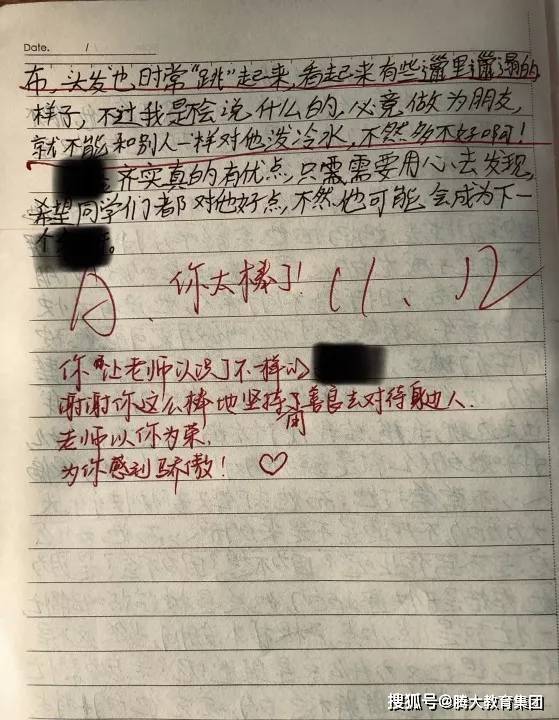 Date. /
布，头发也时常“跳”起来，看起来有些邋里邋遢的
样子，不过我是不会说什么的，必竟做为朋友，
就不能和别人一样对他泼冷水，不然多不好啊！
齐实真的有优点，只需需要用心去发现，
希望同学们都对他好点，不然他可能会成为下一
个
A 你太棒了！ 11、12
你让老师认识了不一样的
谢谢你这么棒地坚持用善良去对待身边人.
老师以你为荣.
为你感到骄傲！ ♡
搜狐号@腾大教育集团